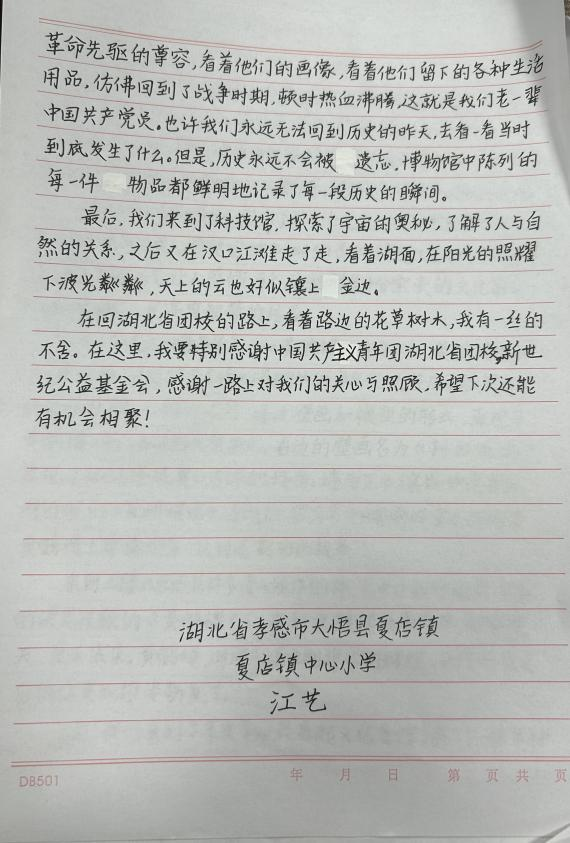 革命先驱的尊容，看着他们的画像，看着他们留下的各种生活
用品，仿佛回到了战争时期，顿时热血沸腾，这就是我们老一辈
中国共产党员。也许我们永远无法回到历史的昨天，去看一看当时
到底发生了什么。但是，历史永远不会被遗忘，博物馆中陈列的
每一件物品都鲜明地记录了每一段历史的瞬间。
最后，我们来到了科技馆，探索了宇宙的奥秘，了解了人与自
然的关系，之后又在汉口江滩走了走，看着湖面，在阳光的照耀
下波光粼粼，天上的云也好似镶上金边。
在回湖北省团校的路上，看着路边的花草树木，我有一丝的
不舍。在这里，我要特别感谢中国共产主义青年团湖北省团校，新世
纪公益基金会，感谢一路上对我们的关心与照顾，希望下次还能
有机会相聚！
湖北省孝感市大悟县夏店镇
夏店镇中心小学
江艺
DB501 年 月 日 第 页 共 页